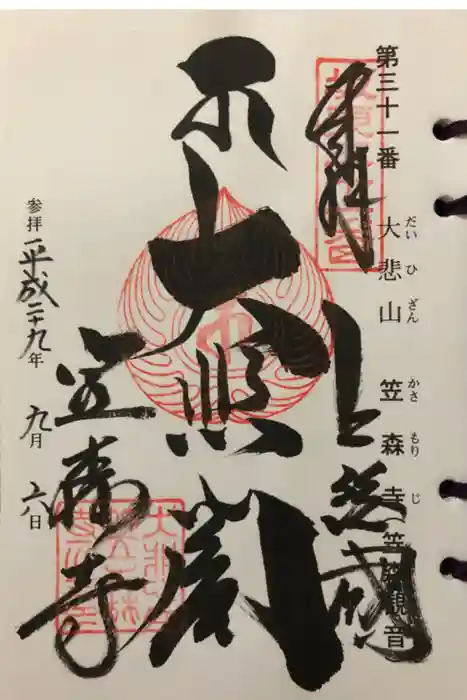 第三十一番 大悲山 笠森寺(笠森観音
だい ひ ざん かさ もり じ
奉拝
上総國
大悲閣
笠森寺
参拝 平成二十九年 九月 六日